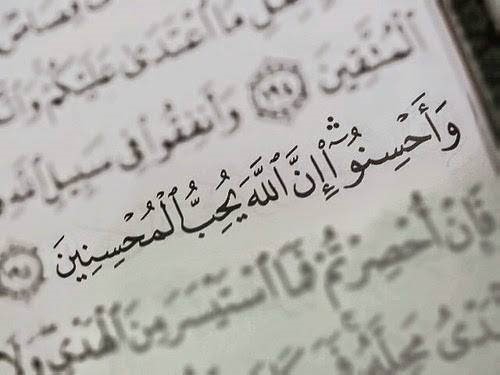 مَا ٱعْتَدَىٰ عَلَيْكُمْ
ٱلْمُتَّقِينَ ١٩٤ وَأَنفِقُوا۟ فِى سَبِيلِ ٱللَّهِ
وَأَحْسِنُوٓا۟ إِنَّ ٱللَّهَ يُحِبُّ ٱلْمُحْسِنِينَ ١٩٥
فَإِنْ أُحْصِرْتُمْ فَمَا ٱسْتَيْسَرَ مِنَ ٱلْهَدْىِ وَلَا
مَحِلَّهُۥ